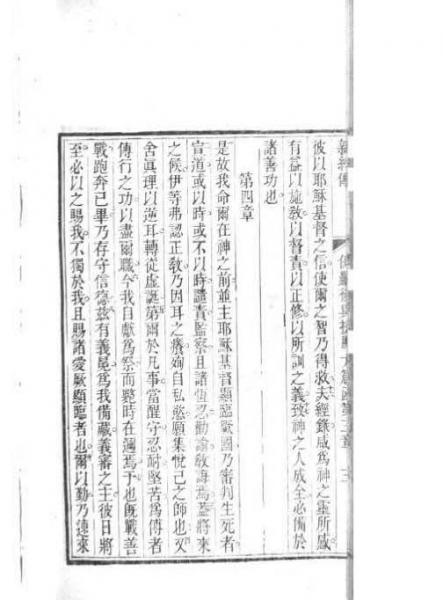 彼以耶穌基督之信使爾之智乃得救夫經錄咸為神之靈所感
有益以施敎以督責以正修以所訓之義致神之人成全必備於
諸善功也
第四章
是故我命爾在神之前並主耶穌基督顯臨厥國乃審判生死者
宣道或以時或不以時譴責監察且諸恆忍勸諭敎誨焉蓋將來
之候伊等弗認正敎乃因耳之癢徇自私慾願集悅己之師也又
舍眞理以逆耳轉從虛誕第爾於凡事當醒守忍耐堅苦為傳者
傳行之功以盡爾職今我自獻為祭而斃時在邇焉予也既戰善
戰跑奔已畢乃存守信德茲有義冕為我備藏義審之主彼日將
至必以之賜我不獨於我且賜諸愛厥顯臨者也爾以勤乃速來